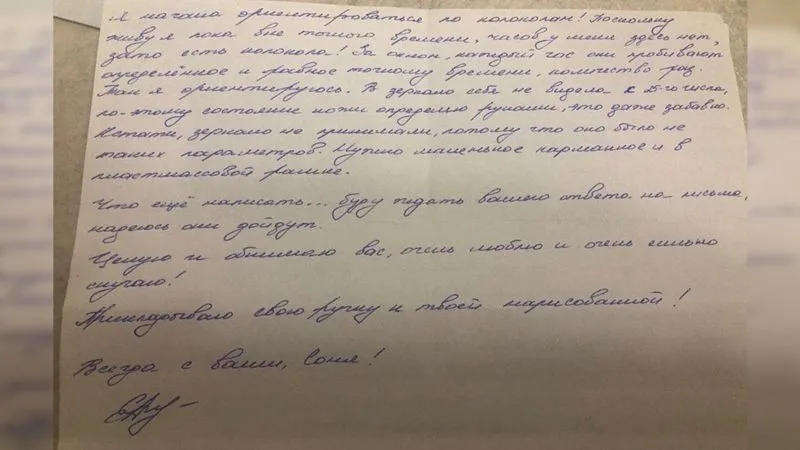 Я начала ориентироваться по колоколам! Поскольку
живу я пока вне точного времени, часов у меня здесь нет,
зато есть колокола! За окном, каждый час они пробивают
определённое и равное точному времени, количество раз.
Так я ориентируюсь. В зеркало себя не видела с 25-го числа,
по-этому состояние кожи определяю руками, это даже забавно.
Кстати, зеркало не принимали, потому что оно было не
таких параметров. Нужно маленькое карманное и в
пластмассовой рамке.
Что ещё написать... буду ждать вашего ответа на письма,
надеюсь они дойдут.
Целую и обнимаю вас, очень люблю и очень сильно
скучаю!
Прикладываю свою ручку к твоей нарисованной!
Всегда с вами, Соня!